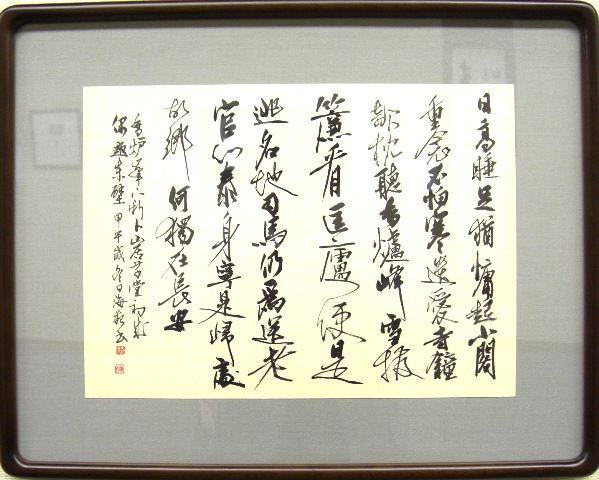 日高睡足猶慵起小閣
重衾不怕寒遺愛寺鐘
欹枕聽香爐峰雪撥
簾看匡廬便是
逃名地司馬仍爲送老
官心泰身寧是歸處
故鄉何獨在長安
香炉峯下新卜山居草堂初成
偶題東壁 甲午歲冬日海